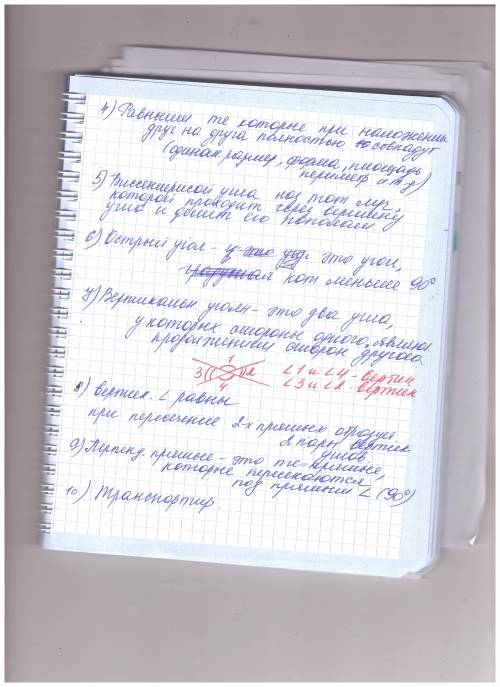 4) Равными те которые при наложении
друг на друга полностью совпадут
(одинак размер, форма, площадь
периметр и т.д)
5) Биссектрисой угла наз тот луч,
который проходит через вершину
угла и делит его пополам.
6) Острый угол - это угол,
кот меньше 90°
7) Вертикальн. углы - это два угла,
у которых стороны одного, являю.
продолжением сторон другого
1
3 2
4
∠1 и ∠4 - вертик
∠3 и ∠2 - вертик
8) вертик. ∠ равны
при пересечение 2х прямых образуе.
2 пары вертик
углов
9) Перпенд. прямые - это те прямые,
которые пересекаются
под прямым ∠ (90°)
10) Транспортир.